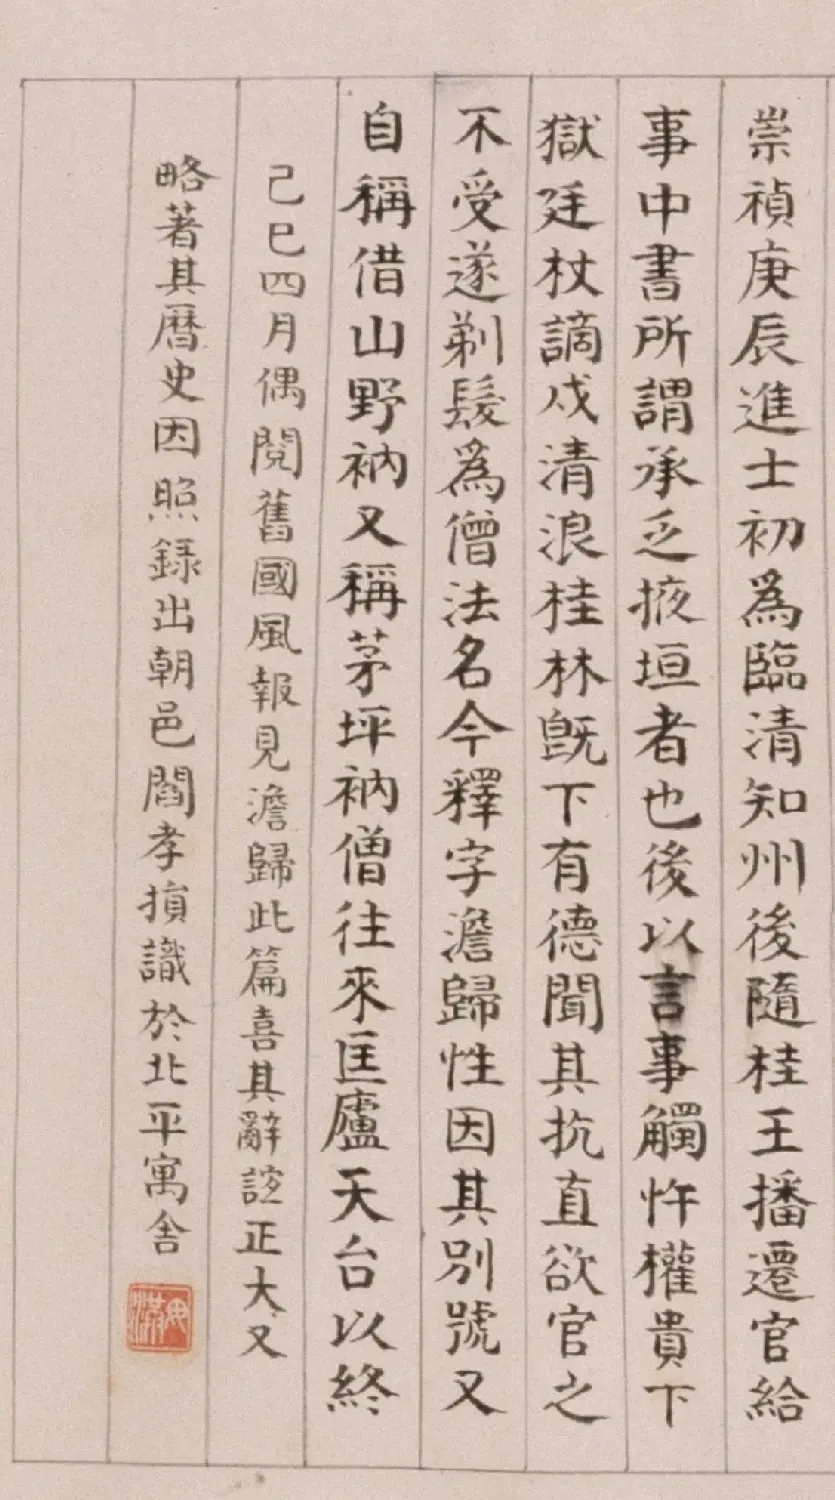 崇禎庚辰進士初爲臨清知州後隨桂王播遷官給
事中書所謂承乏掖垣者也後以言事觸忤權貴下
獄廷杖謫戍清浪桂林旣下有德聞其抗直欲官之
不受遂剃髮爲僧法名今釋字澹歸性因其別號又
自稱借山野衲又稱茅坪衲僧往來匡廬天台以終
己巳四月偶閱舊國風報見澹歸此篇喜其辭誼正大又
略著其曆史因照錄出朝邑閻孝損識於北平寓舍